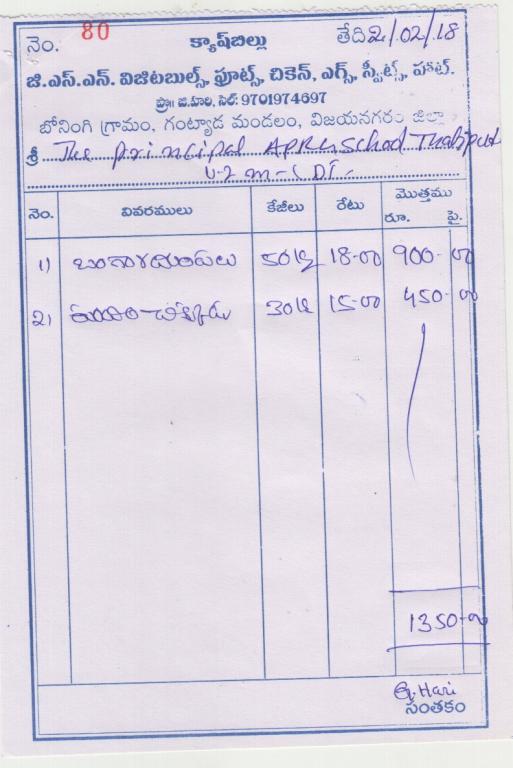 నెం. 80 క్యాష్‌బిల్లు తేది 2/02/18
జి.ఎస్.ఎన్. విజిటబుల్స్, ఫ్రూట్స్, చికెన్, ఎగ్స్, స్వీట్స్, హాట్.
ప్రొ॥ జి.హరి, సెల్: 9701974697
బోనింగి గ్రామం, గంట్యాడ మండలం, విజయనగరం జిల్లా
శ్రీ The principal APR School
నెం. వివరములు కేజీలు రేటు మొత్తము
రూ. పై.
1) బంగాళదుంపలు 50 18-00 900-00
2) 30 15-00 450-00
1350-00
G. Hari
సంతకం